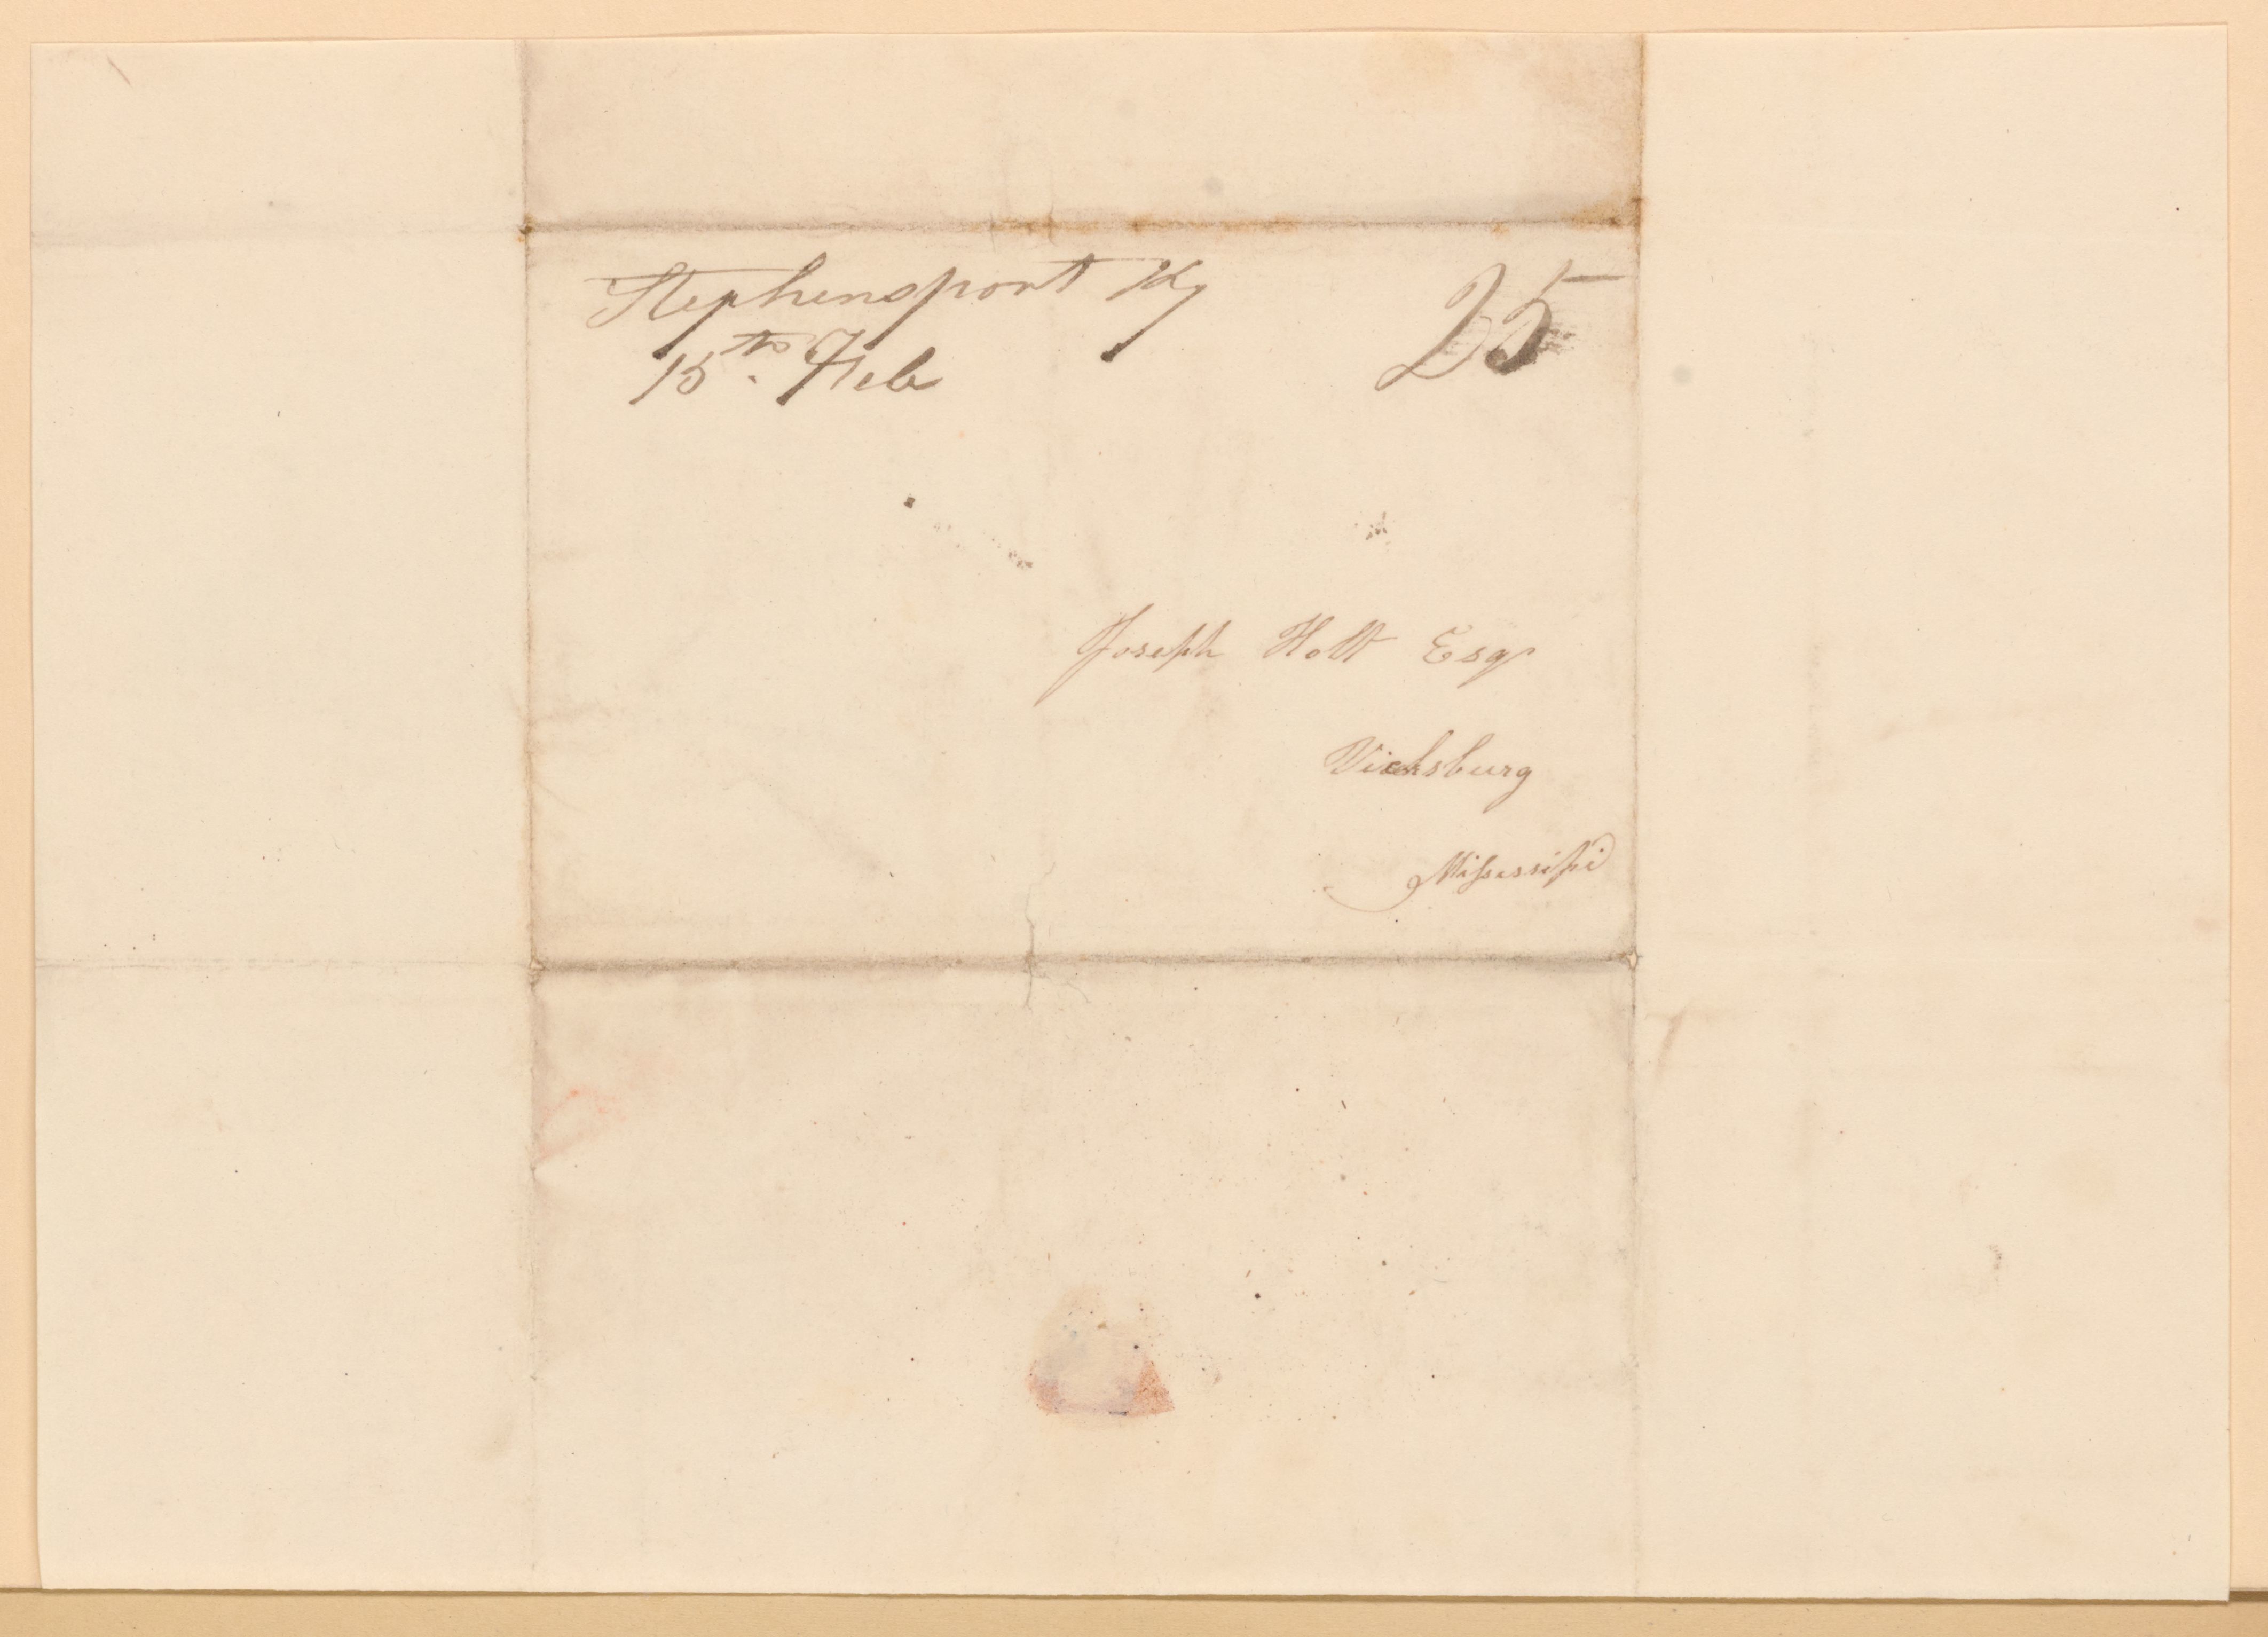 Stephensport Ky
15th. Feb
25
Joseph Holt Esqr
Vicksburg
Missessipi